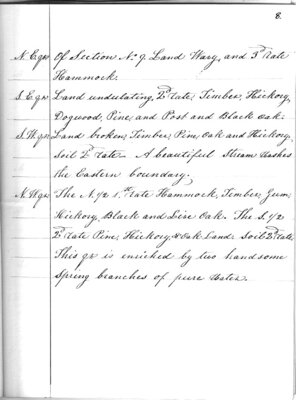 8.
N.E.qr Of Section No. 9. Land Wavy, and 3d rate
Hammock.
S.E.qr Land undulating, 2d rate, Timber, Hickory,
Dogwood, Pine, and Post and Black Oak.
S.W.qr Land broken, Timber, Pine, Oak and Hickory,
Soil 2d rate. A beautiful Stream washes
the Eastern boundary.
N.W.qr The N. 1/2 1st rate Hammock, Timber, Gum,
Hickory, Black and Live Oak. The S. 1/2
2d rate Pine, Hickory, & Oak Land. Soil 2d rate.
This qr is enriched by two handsome
Spring branches of pure Water.